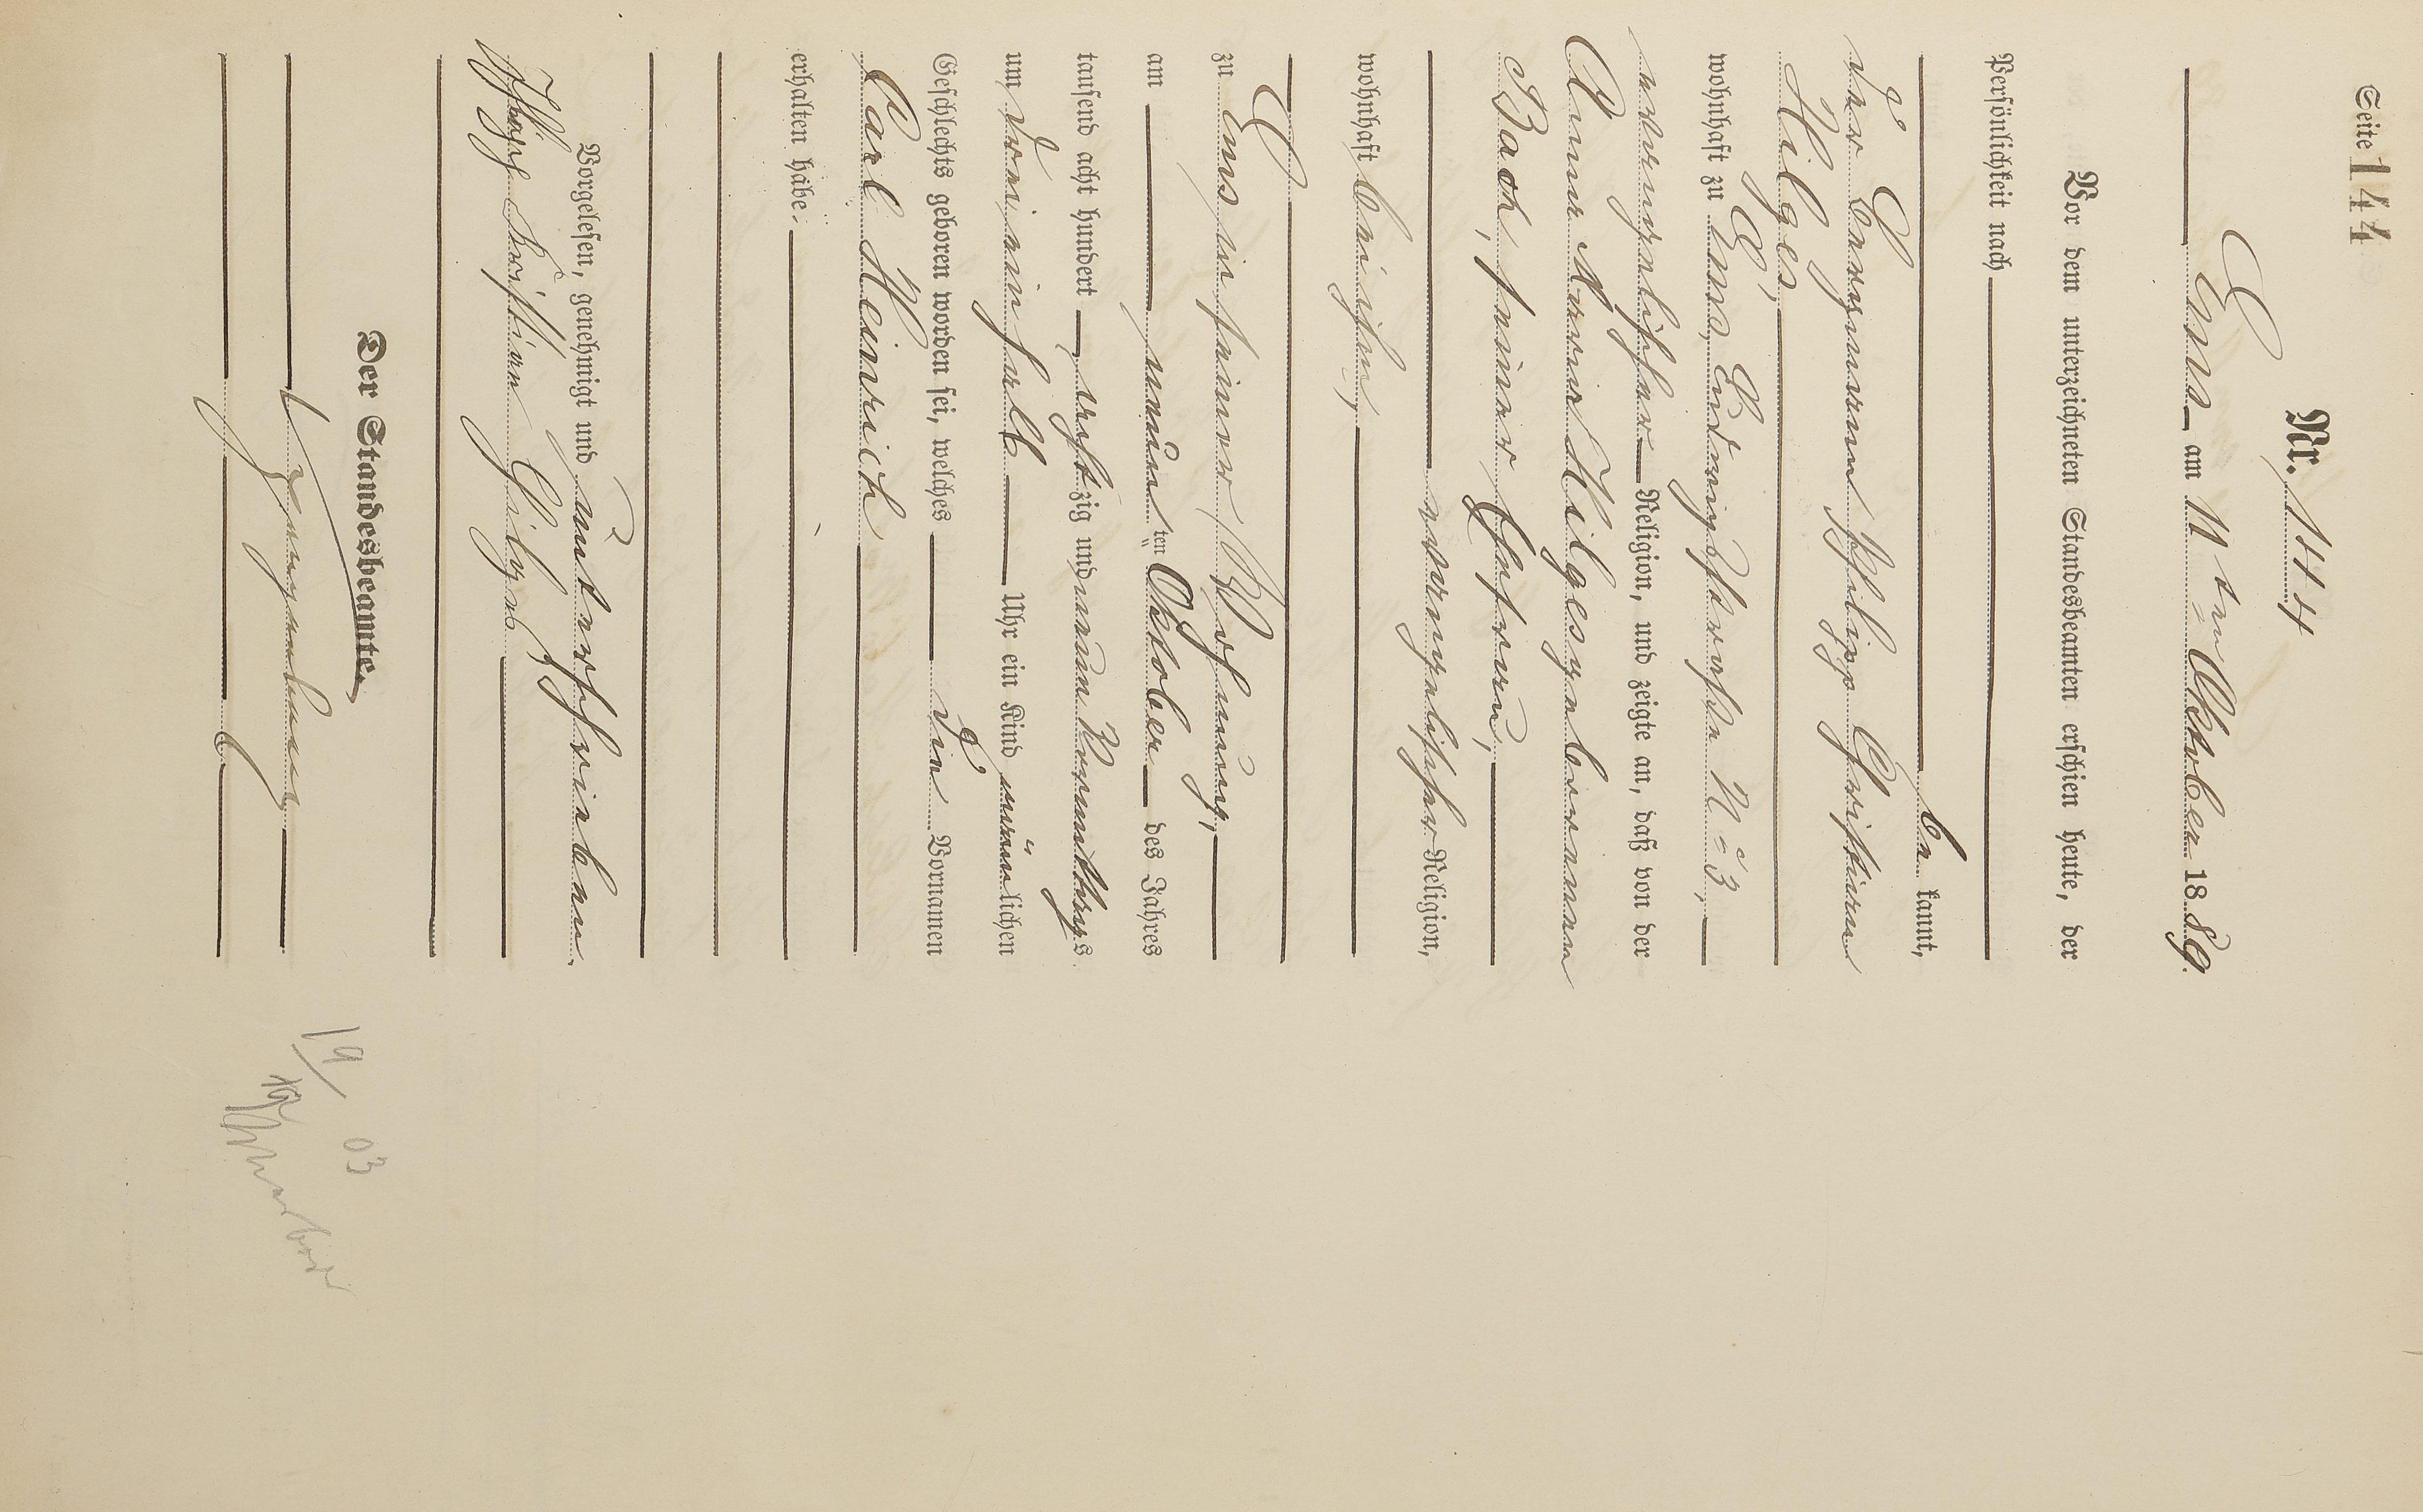 Seite 144
Nr. 144
Ems am 11 ten Oktober 1889.
Vor dem unterzeichneten Standesbeamten erschien heute, der
Persönlichkeit nach
be kannt,
der Bergmann Philipp Christian
Hilges,
wohnhaft zu Ems, Ludwigstraße No 3,
evangelischer Religion, und zeigte an, daß von der
Anna Maria Hilges geborenen
Bach, seiner Ehefrau,
evangelischer Religion,
wohnhaft bei ihm,
zu Ems in seiner Wohnung,
am neunten Oktober des Jahres
tausend acht hundert acht zig und neun Vormittags
um drei ein halb Uhr ein Kind männlichen
Geschlechts geboren worden sei, welches die Vornamen
Carl Heinrich
erhalten habe.
Vorgelesen, genehmigt und unterschrieben
Philipp Christian Hilges
Der Standesbeamte.
19/ 03